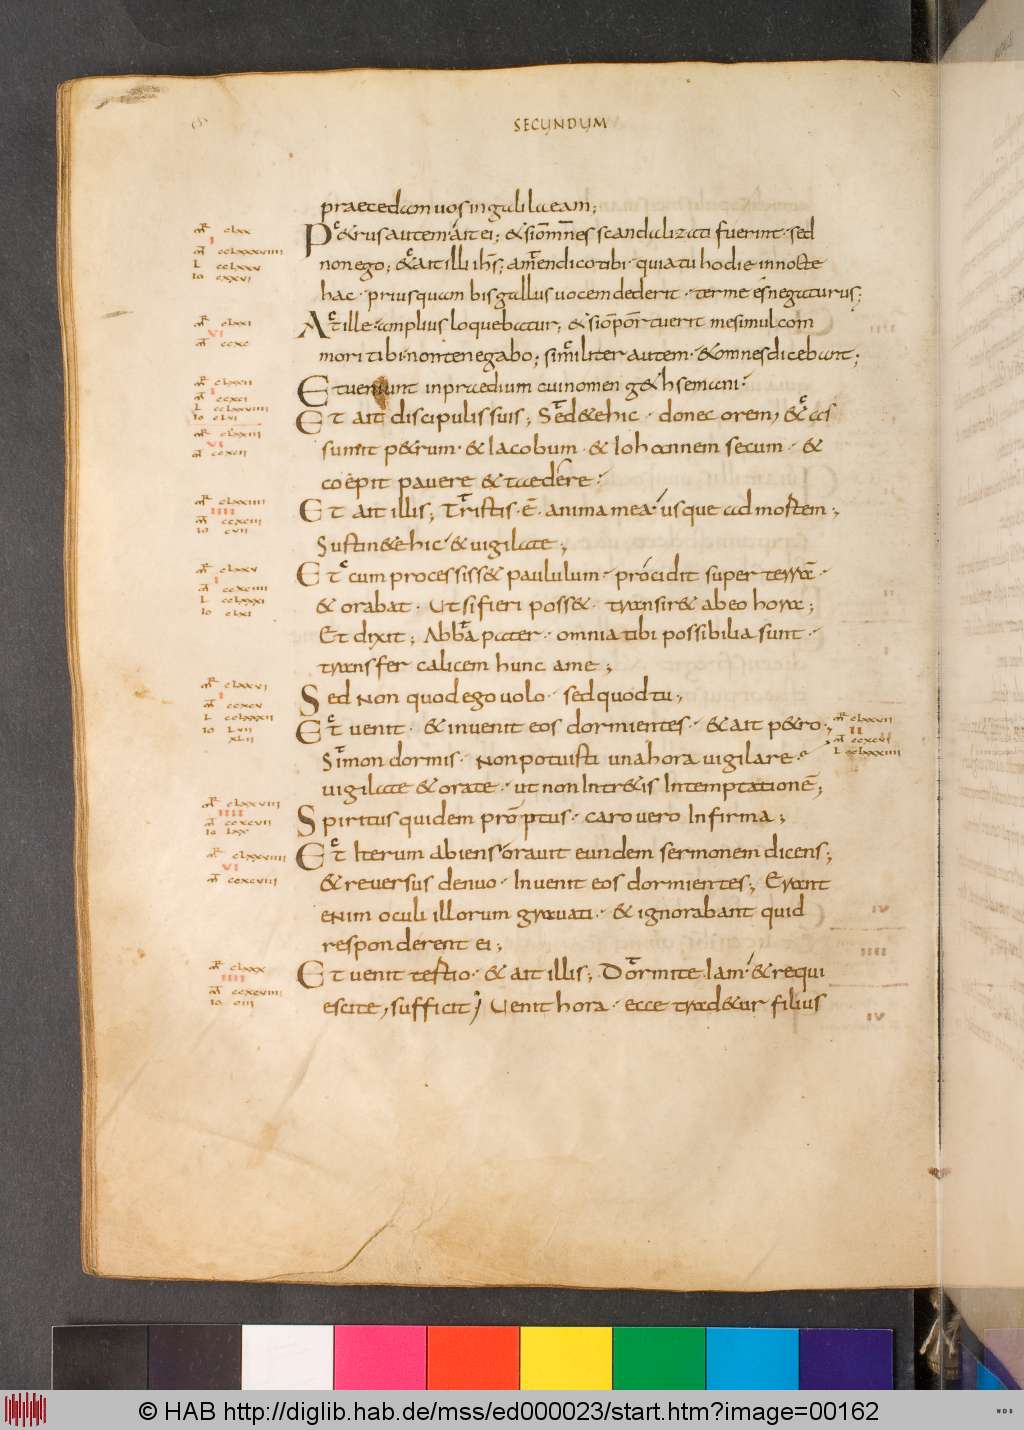 SECUNDUM
praecedam uos in galilaeam;
P&rus autem ait ei; &si om̄nes scandalizati fuerint· sed
non ego; & ait illi ih̄s; amen dico tibi· quia tu hodie in nocte
hac· priusquam bis gallus uocem dederit· ter me es negaturus;
At ille· amplius loquebatur; &si oportuerit me simul com
mori tibi· non te negabo; similiter autem· & omnes dicebant;
Et ueniunt in praedium cui nomen g&hsemani·
Et ait discipulis suis; Sed&e hic· donec orem, & as
sumit p&rum· & Iacobum· & Iohannem secum· &
coepit pauere & taedere·
Et ait illis; Tristis· ē· anima mea· usque ad mortem;
Sustin&e hic· & uigilate;
Et cum processiss& paululum· procidit super terrā·
& orabat· Ut si fieri poss&· transir& ab eo hora;
Et dixit; Abba pater· omnia tibi possibilia sunt·
transfer calicem hunc a me;
Sed non quod ego uolo· sed quod tu;
Et uenit· & inuenit eos dormientes· & ait p&ro·;
Simon dormis· Non potuisti una hora uigilare·
uigilate & orate· ut non Intr&is In temptationē;
Spiritus quidem promptus· caro uero Infirma;
Et Iterum abiens orauit eundem sermonem dicens;
& reuersus denuo· Inuenit eos dormientes; Erant
enim oculi illorum grauati· & ignorabant quid
responderent ei;
Et uenit tertio· & ait illis; Dormite Iam· & requi
escite, sufficit; Uenit hora· ecce trad&ur filius
© HAB http://diglib.hab.de/mss/ed000023/start.htm?image=00162